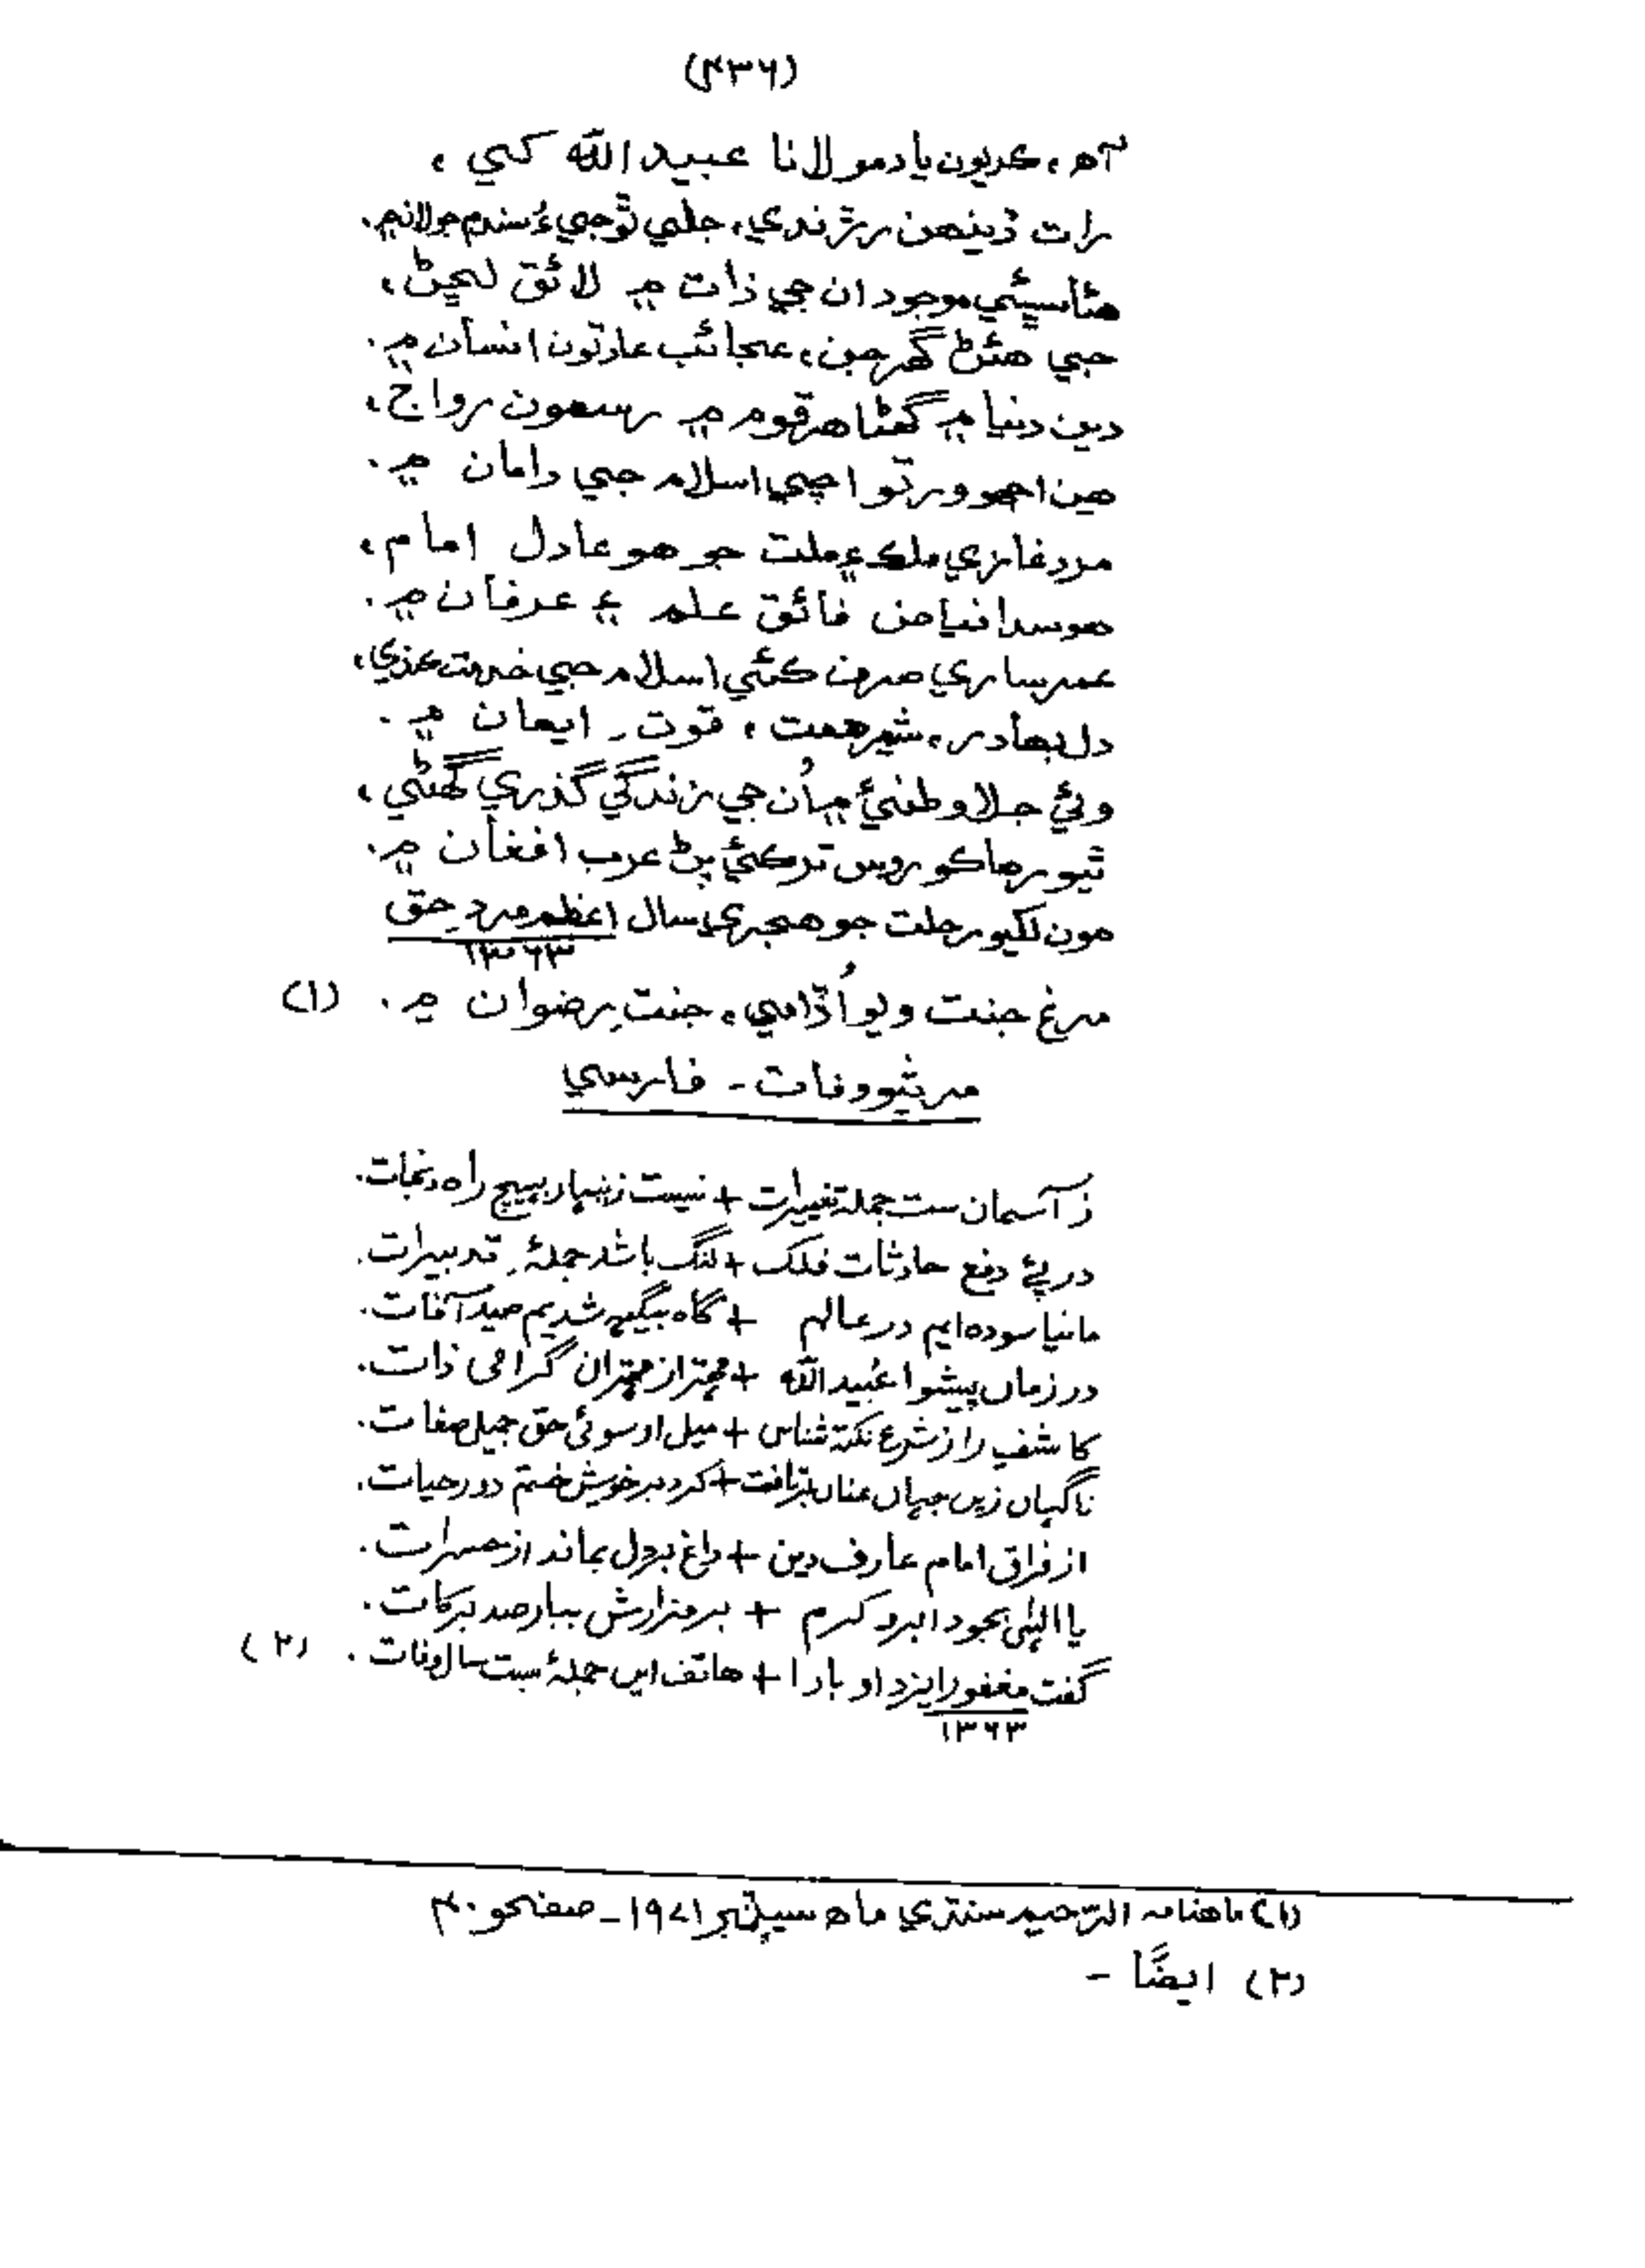 (۴۳۶)
آھ، ڪريون ياد مولانا عبيد الله کي،
رات ڏينهن رڙندي، جلي ٿو جيءُ سندم جولان ۾.
هئا سڀئي موجود ان جي ذات ۾ لائق لڇڻ،
جي هئڻ گهرجن، عجائب عادتون انسان ۾.
دين دنيا ۾ گهڻا هر قوم ۾ رسمون رواج،
هين اجهو ورتو اچي اسلام جي دامان ۾.
مرد غازي ملڪ ۽ ملت جو هو عادل امام،
هو سدا فياض فائق علم ۽ عرفان ۾.
عمر ساري صرف ڪئي اسلام جي خدمت عزي،
دل بهادر، شير همت، قوت ـ ايمان ۾.
وئي جلاوطنيءَ ۾ اُن جي زندگي گذري گهڻي،
ٿيو رهاڪو روس ترڪيءَ پڻ عرب افغان ۾.
هون لکيو رحلت جو هجري سال اعظم مردِ حق
۱۳۶۳
مرغ جنت ويو اُڏامي، جنتِ رضوان ۾. (۱)
مرثيو وفات - فارسي
ز آسمان ست جمله تغييرات + نيست زينهار هيچ راه نجات.
در پئے دفع حادثات فلک + لنگ باشد جملۂ تدبيرات.
ما نياسوده ايم در عالم + گاه بيگهہ شديم صيد آفات.
در زماں پيشوا عُبيد الله + مهتر از مهتران گرامی ذات.
کاشفِ راز شرع نکته شناس + ميل او سوئی حق جميل صفات.
ناگہاں زيں جہاں عناں بر تافت + کرد بر خويش ختم دور حيات.
از فراق امام عارف دين + داغ بر دل بماند از حسرات.
يا الٰہی بجود ابر و کرم + بر مزارش ببار صد برکات.
گفت مغفور ايزد او بادا + هاتف ايں جملۂ سبت سال وفات. (۲)
۱۳۶۳
(۱) ماهنامہ الرّحيم سنڌي ماھ سيپٽمبر ۱۹۷۱ـ صفحو ۴۰
(۲) ايضًا -